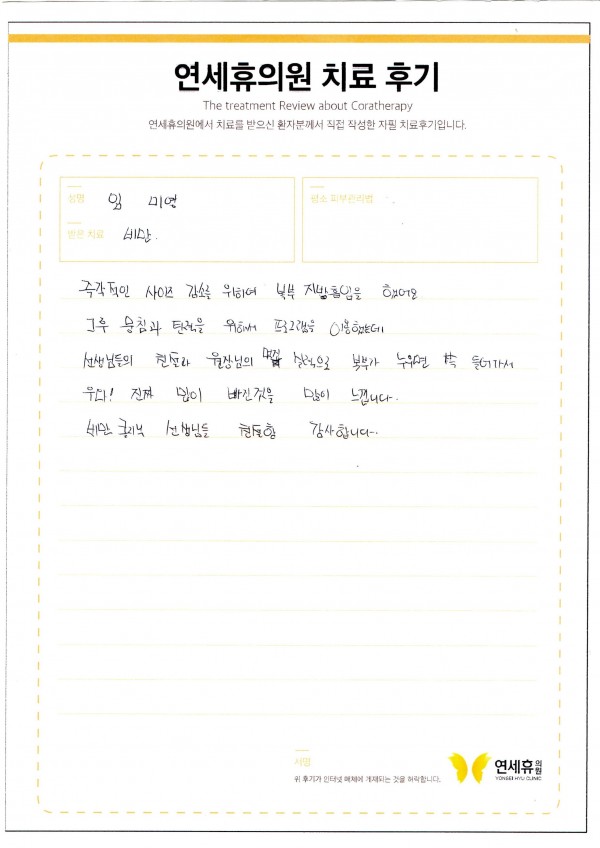 연세휴의원 치료 후기
The treatment Review about Coratherapy
연세휴의원에서 치료를 받으신 환자분께서 직접 작성한 자필 치료후기입니다.
성명 임 미영
받은 치료 비만.
평소 피부관리법
즉각적인 사이즈 감소를 위하여 복부 지방흡입을 했어요
그후 뭉침과 탄력을 위해서 프로그램을 이용했는데
선생님들의 원장님의 실력으로 복부가 누우면 쏙 들어가서
우와! 진짜 많이 빠진것을 많이 느낍니다.
비만 선생님들 감사합니다.
서명
위 후기가 인터넷 매체에 게재되는 것을 허락합니다.
연세휴의원
YONSEI HYU CLINIC